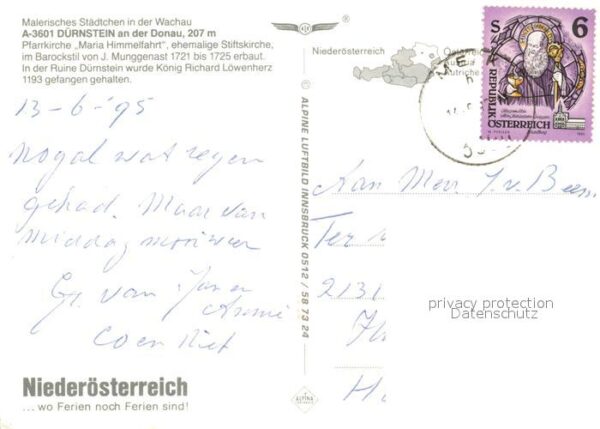 Malerisches Städtchen in der Wachau
A-3601 DÜRNSTEIN an der Donau, 207 m
Pfarrkirche „Maria Himmelfahrt", ehemalige Stiftskirche,
im Barockstil von J. Munggenast 1721 bis 1725 erbaut.
In der Ruine Dürnstein wurde König Richard Löwenherz
1193 gefangen gehalten.
13-6-'95
Nogal wat regen
gehad. Maar van
middag mooi weer
Gr. van
Coen
Niederösterreich
... wo Ferien noch Ferien sind!
© ALPINE LUFTBILD INNSBRUCK 0512 / 58 73 24
ALPINE
Niederösterreich
S 6
REPUBLIK
ÖSTERREICH
Aan Mevr. J. v.
Ter
2131
privacy protection
Datenschutz